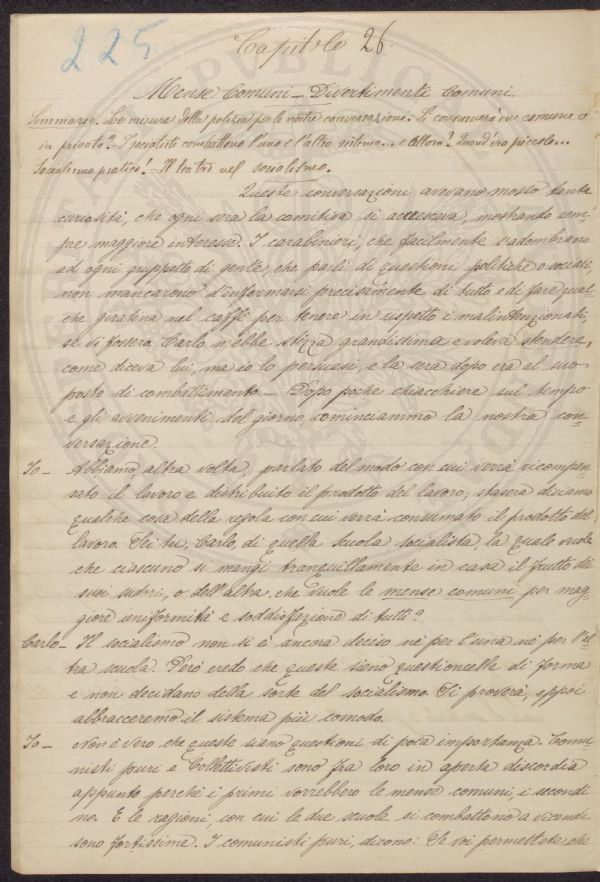 225
Capitolo 26.
Mense Comuni – Divertimenti Comuni
Sommario. Le misure della polizia per le nostre conversazioni. Si consumerà in comune o
in privato? I socialisti combattono l'uno e l'altro sistema... e allora? Quand'ero piccolo...
Socialismo pratico! – Il teatro nel socialismo.
Queste conversazioni avevano mosso tanta
curiosità, che ogni sera la comitiva si accresceva, mostrando sem-
pre maggiore interesse. I carabinieri, che facilmente s'adombrano
ad ogni gruppetto di gente, che parli di questioni politiche o sociali,
non mancarono d'informarsi precisamente di tutto e di fare qual-
che giratina nel caffè per tenere in rispetto i malintenzionati,
se vi fossero. Carlo n'ebbe stizza grandissima e voleva stendere,
come diceva lui, ma io lo persuasi, e la sera dopo era al suo
posto di combattimento. – Dopo poche chiacchiere sul tempo
e gli avvenimenti del giorno, cominciammo la nostra con-
versazione.
Io – Abbiamo, altra volta, parlato del modo con cui verrà ricompen-
sato il lavoro e distribuito il prodotto del lavoro; stasera diciamo
qualche cosa della regola con cui verrà consumato il prodotto del
lavoro. Sei tu, Carlo, di quella scuola socialista, la quale vuole
che ciascuno si mangi tranquillamente in casa il frutto di
suoi sudori, o dell'altra, che vuole le mense comuni per mag-
giore uniformità e soddisfazione di tutti?
Carlo – Il socialismo non si è ancora deciso nè per l'una nè per l'al-
tra scuola. Però credo che queste siano questioncelle di forma
e non decidano della sorte del socialismo. Si proverà, eppoi
abbracceremo il sistema più comodo.
Io – Non è vero che queste siano questioni di poca importanza. Comu-
nisti puri e Collettivisti sono fra loro in aperta discordia
appunto perchè i primi vorrebbero le mense comuni, i secondi
no. E le ragioni, con cui le due scuole si combattono a vicenda
sono fortissime. I comunisti puri, dicono: Se voi permettete che